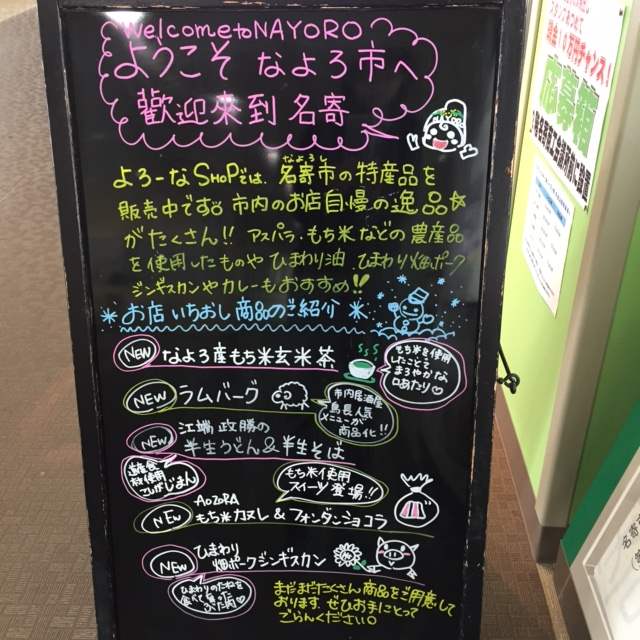 Welcome to NAYORO
ようこそ なよろ市へ
歡迎來到 名寄
NAYORO
よろーなSHOPでは、名寄市の特産品を
なよろし
販売中です。市内のお店自慢の逸品☆
がたくさん!! アスパラ・もち米などの農産品
を使用したものや ひまわり油、ひまわり畑ポーク
ジンギスカンやカレーもおすすめ!!
＊お店いちおし商品のご紹介＊
NEW なよろ産もち米玄米茶
もち米を使用
したことで
まろやかな
口あたり♡
NEW ラムバーグ
市内居酒屋
鳥長人気
メニューが
商品化!!
NEW 江端 政勝の
半生うどん&半生そば
じまん
もち米使用
スイーツ登場!!
AOZORA
NEW もち米カヌレ&フォンダンショコラ
NEW ひまわり
畑ポークジンギスカン
ひまわりのたねを
食べて育った
ぶた肉♡
まだまだたくさん商品をご用意して
おります。ぜひお手にとって
ごらんください。
応募箱